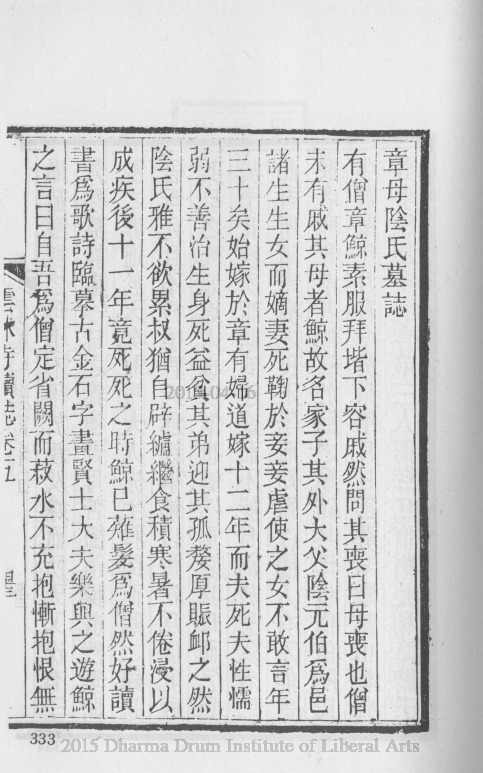 章母陰氏墓誌
有僧章鯨素服拜堦下容戚然問其喪曰母喪也僧
未有戚其母者鯨故名家子其外大父陰元伯爲邑
諸生生女而嫡妻死鞠於妾妾虐使之女不敢言年
三十矣始嫁於章有婦道嫁十二年而夫死夫性懦
弱不善治生身死益貧其弟迎其孤嫠厚賑卹之然
陰氏雅不欲累叔猶自辟纑繼食積寒暑不倦浸以
成疾後十一年竟死死之時鯨已薙髮爲僧然好讀
書爲歌詩臨摹古金石字畫賢士大夫樂與之遊鯨
之言曰自吾爲僧定省闕而菽水不充抱慚抱恨無
雲林寺續誌卷五
333
2015 Dharma Drum Institute of Liberal Arts